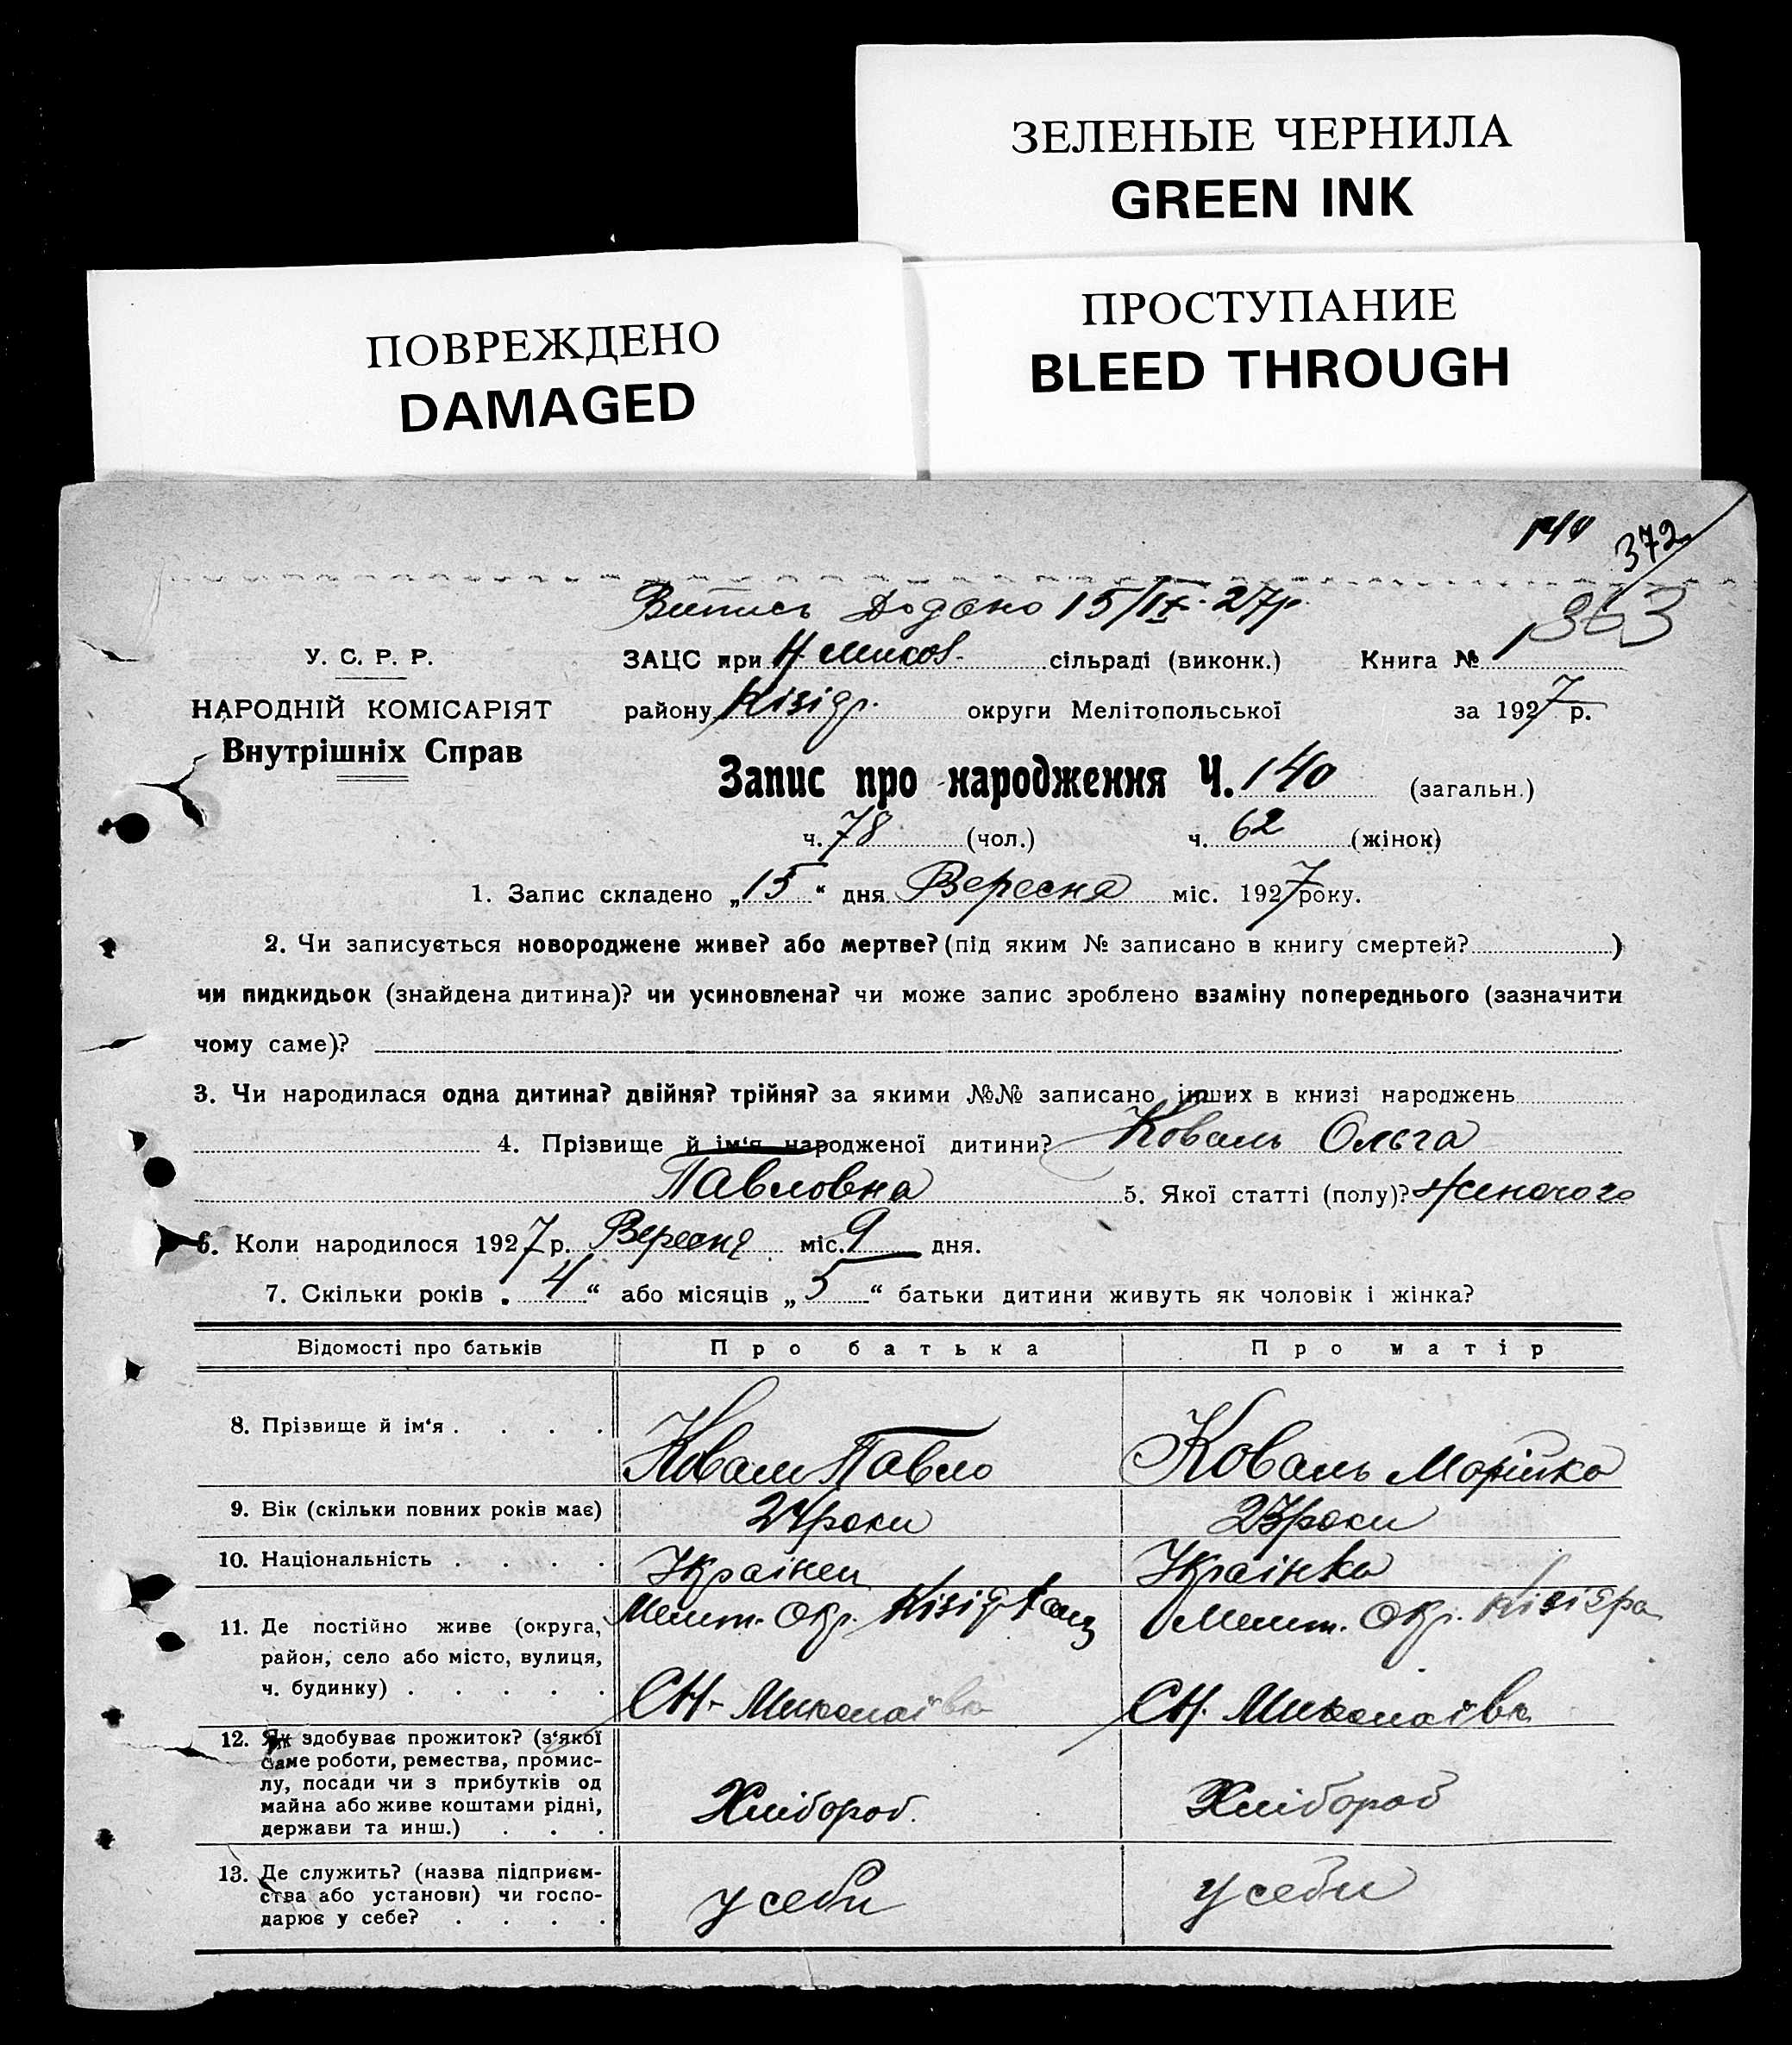 ЗЕЛЕНЫЕ ЧЕРНИЛА
GREEN INK
ПОВРЕЖДЕНО
DAMAGED
ПРОСТУПАНИЕ
BLEED THROUGH
140
372
Витись Додано 15/IX-27р.
363
У. С. Р. Р.
ЗАЦС при Н миков. сільраді (виконк.) Книга №
НАРОДНІЙ КОМІСАРІЯТ
району Кізідр. округи Мелітопольської за 1927 р.
Внутрішніх Справ
Запис про народження Ч. 140 (загальн.)
ч. 78 (чол.) ч. 62 (жінок)
1. Запис складено „15“ дня Вересня міс. 1927 року.
2. Чи записується новороджене живе? або мертве? (під яким № записано в книгу смертей? )
чи пидкидьок (знайдена дитина)? чи усиновлена? чи може запис зроблено взаміну попереднього (зазначити
чому саме)?
3. Чи народилася одна дитина? двійня? трійня? за якими №№ записано інших в книзі народжень
4. Прізвище й ім‘я народженої дитини? Коваль Ольга
Павловна 5. Якої статті (полу)? женочого
6. Коли народилося 1927 р. Вересня міс. 9 дня.
7. Скільки років „4“ або місяців „5“ батьки дитини живуть як чоловік і жінка?
Відомості про батьків Про батька Про матір
8. Прізвище й ім‘я . . . . Коваль Павло Коваль Марійка
9. Вік (скільки повних років має) 24 роки 23 роки
10. Національність . . . . Українец Українка
11. Де постійно живе (округа, Мелит. Окр. Мелит. Окр.
район, село або місто, вулиця,
ч. будинку) . . . . . СН-Миколаївка СН. Миколаівка
12. Як здобуває прожиток? (з‘якої
саме роботи, ремества, промис-
лу, посади чи з прибутків од
майна або живе коштами рідні, Хлібороб. Хлібороб
держави та инш.) . . .
13. Де служить? (назва підприєм-
ства або установи) чи госпо- у себи у себи
дарює у себе? . . . .